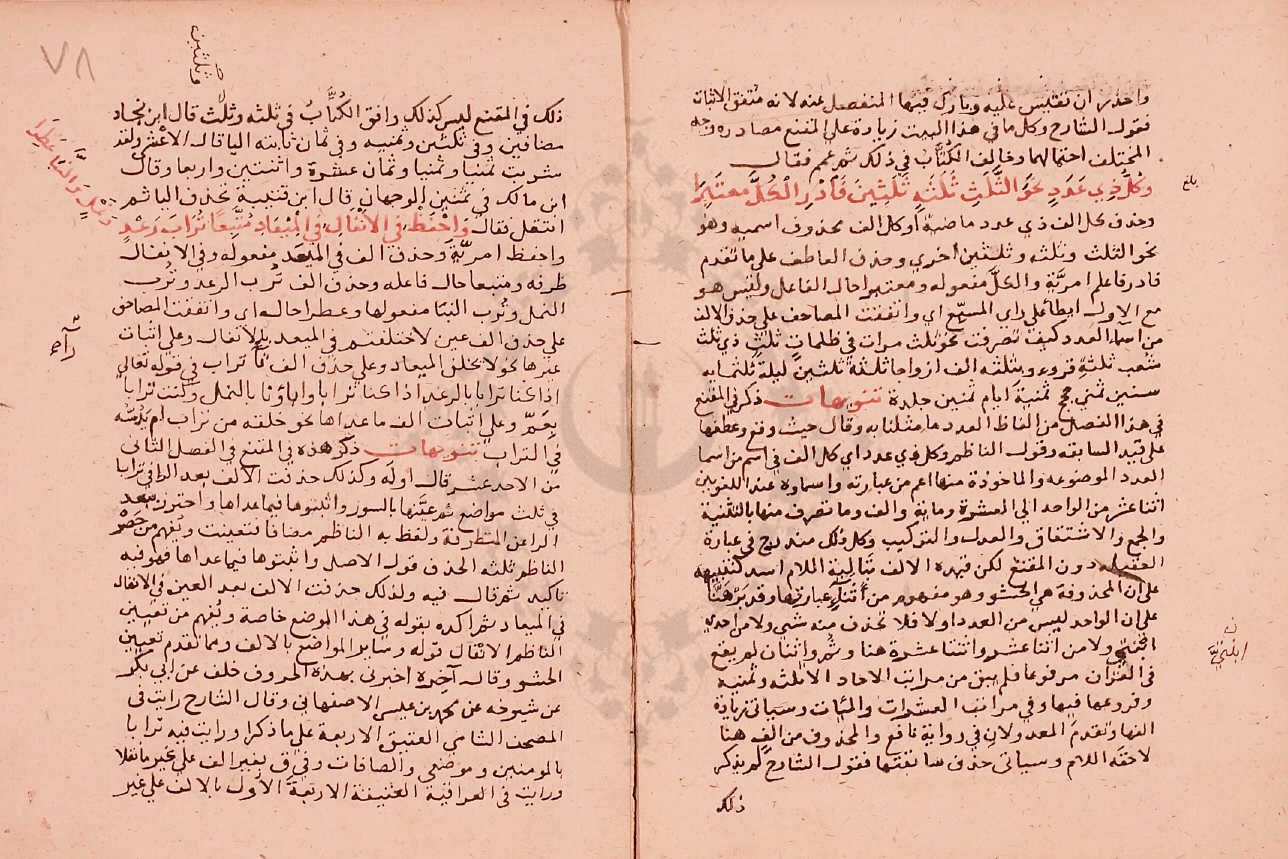 واحذر ان تقلس عليه ويازل فيها المنفصل لمنه لانه متفق الاثبات
فقول الشارح وكل ما في هذا البيت زيادة على المقنع مصادره وجه
المختلف احتمالهما وخالف الكُتَّاب في ذلك ثم عمم فقال
وكلّ ذي عَدَدٍ نحو الثُّلث ثُلثه ثَلثين فَادْرِ الْكُلَّ معتبرا
بلغ
وحذف كل الف ذي عدد ماضية او كل الف محذوف اسميه وهو
نحو الثلث وثلثه وثلثين اخري وحذف العاطف على ما تقدم
فادر فاعلم امريَّة والكلَّ مفعوله ومعتبرا حال الفاعل وليس هو
مع الاول ايطأ على راي المسبّع اي واتفقت المصاحف على حذف الالف
من اسماء العدد كيف تصرفت نحو ثلث مرات في ظلمات ثلث ذي ثلث
شعب ثلثة قروء وبثلثه الف ازواجا ثلثة ثلثين ليلة ثلثمايه
سنين ثمني حجج ثمنية ايام ثمنين جلدة تنويهات ذكر في المقنع
في هذا الفصل من الفاظ العدد ما مثلنا به وقال حيث وقع وعطفها
على قيد السابقه وقول الناظم وكل ذي عدد اي كل الف في اسم من اسما
العدد الموضوعه والماخوذة منها اعم من عبارته واسماوه عند اللغويين
اثنا عشر من الواحد الي العشرة وماية والف وما تصرف منها بالتثنية
والجمع والاشتقاق والعدل والتركيب وكل ذلك مندرج في عبارة
العقيله دون المقنع لكن قيده الالف بتالية اللام اسد كتنبيهه
على ان المحذوفة هي الحشو وهو مفهوم من عبارتها وقد برهنَّا
على ان الواحد ليس من العدد اولا فلا يحذف منه شي ولا من احدي
اثنتي ولا من اثنا عشر واثنتا عشرة هنا وثم واثنان لم يقع
في القرآن مرفوعا فلم يبق من مراتب الاحاد الا ثلثه وثمنيه
وفروعها فيها وفي مراتب العشرات والميات وسياتي زيادة
الفها وتقدم المعدولان في رواية نافع والمحذوف من الف هنا
لاحقه اللام وسياتي حذف سابقتها فقول الشارح لم يذكر
ذلك
٧٨
وثلثين
ذلك في المقنع ليس كذلك وافق الكُتَّابُ في ثلثه وثلث قال ابن نجاد
مضافين وفي ثلثين وثمنيه وفي ثمان ثابته اليا قال الاعشى ولقد
شربت ثمنيا وثمنيا وثمان عشرة واثنتين واربعا وقال
ابن مالك في ثمنين الوجهان قال ابن قتيبة بحذف اليا ثم
انتقل فقال وَاحْفَظْ في الأنْفَالِ في الْمِيْعَادِ مُتَّبِعًا تُرَابَ رَعْدٍ
واحفظ امريَّة وحذف الف في الميعد مفعوله وفي الانفال
ظرفه ومتبعا حال فاعله وحذف الف تُرب الرعد وتُرب
النمل وتُرب النبا مفعولها وعطرا حاله اي واتفقت المصاحف
على حذف الف عين لاختلفتم في الميعد بالانفال وعلى اثبات
غيرها نحو لا يخلف الميعاد وعلى حذف الف تراب في قوله تعالي
اذا كنا ترابا بالرعد اذا كنا ترابا واباؤنا بالنمل وكنت ترابا
بِعَمَّ وعلى اثبات الف ما عداها نحو خلقه من تراب ام يدسّه
في التراب تنويهات ذكر هذه في المقنع في الفصل الثاني
من الاحد عشر قال اوله وكذلك حذفت الالف بعد الرا في ترابا
في ثلث مواضع ثم عيّنها بالسور واثبتوها فيما عداها واحترز ببعد
الرا عن المتطرفة ولفظ به الناظم مضافا فتعينت ويُفهم من حَصْرِ
الناظم ثلثه الحذف قول الاصل واثبتوها فيما عداها فهو فيه
تاكيد ثم قال فيه ولذلك حذفت الالف بعد العين في الانفال
في الميعاد ثم اكده بقوله في هذا الموضع خاصة ويُفهم من تعيين
الناظم الانفال قوله وساير المواضع بالالف ومما تقدم تعيين
الحشو وقال آخره اخبرني بهذه الحروف خلف عن ابي بكر
عن شيوخه عن محمد بن عليسي الاصفهاني وقال الشارح رايت في
المصحف الشامي العتيق الاربعة على ما ذكرا ورايت فيه ترابا
بالمومنين وموضعي والصافات وفي ق بغير الف على غير ما نقلا
ورايت في العراقية العتيقة الاربعة الاُول بالالف على غير